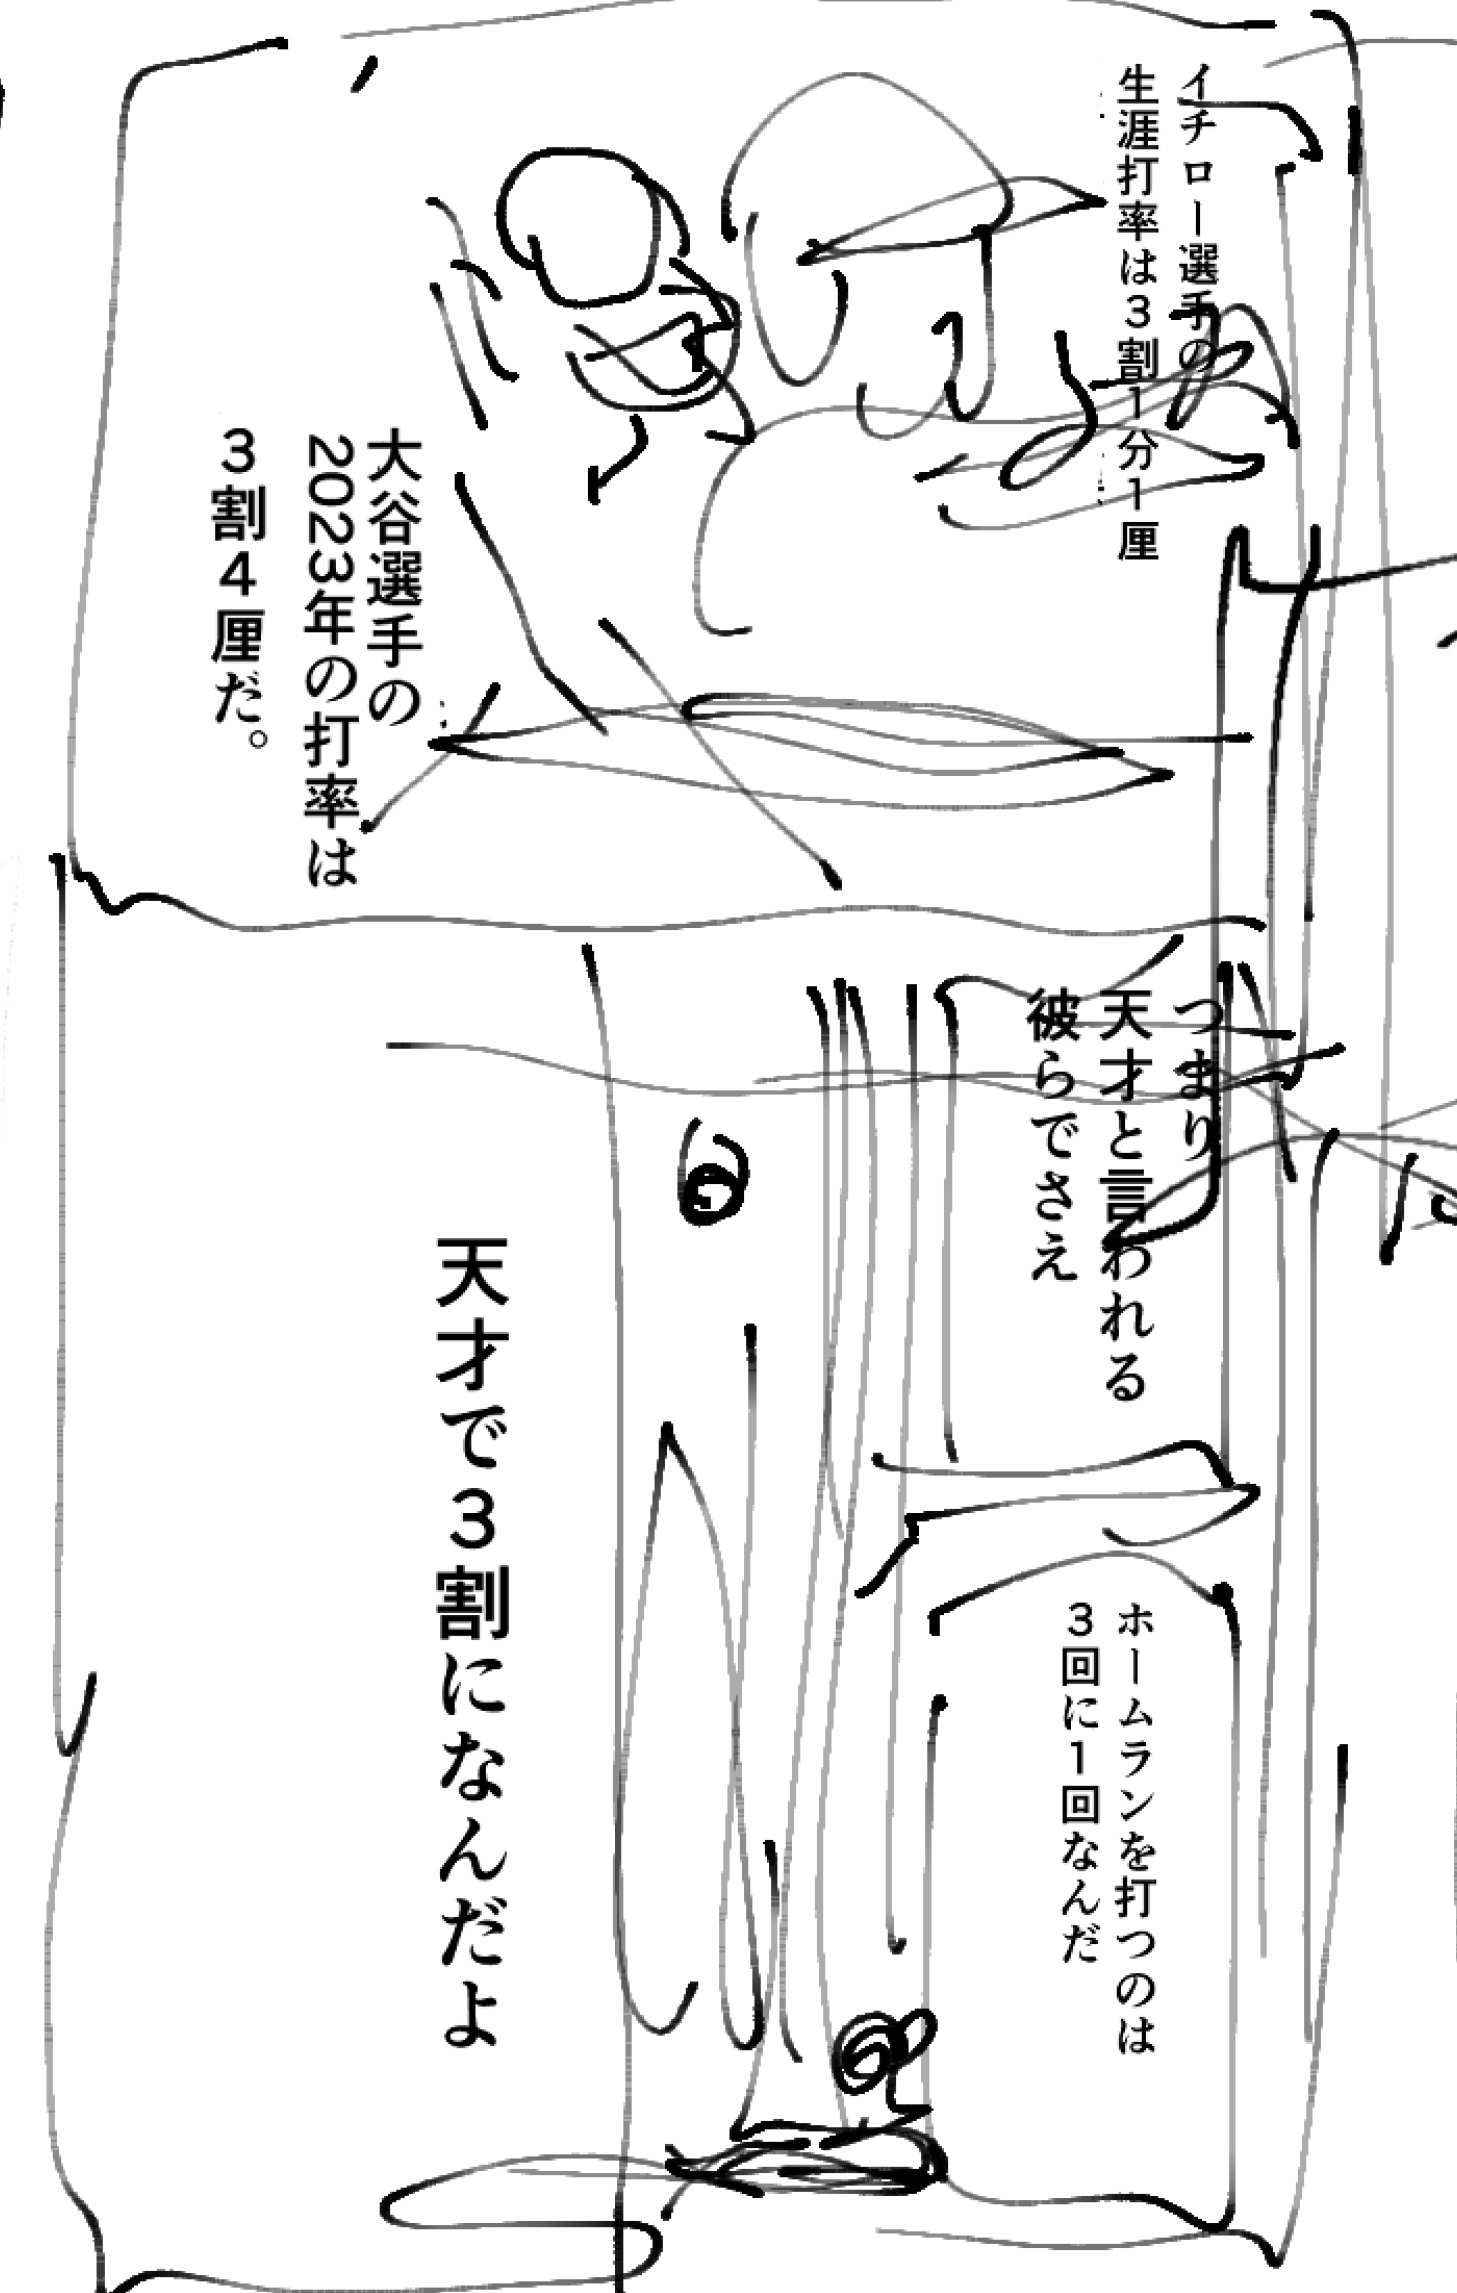 イチロー選手の
生涯打率は3割1分1厘
大谷選手の
2023年の打率は
3割4厘だ。
つまり
天才と言われる
彼らでさえ
ホームランを打つのは
3回に1回なんだ
天才で3割になんだよ